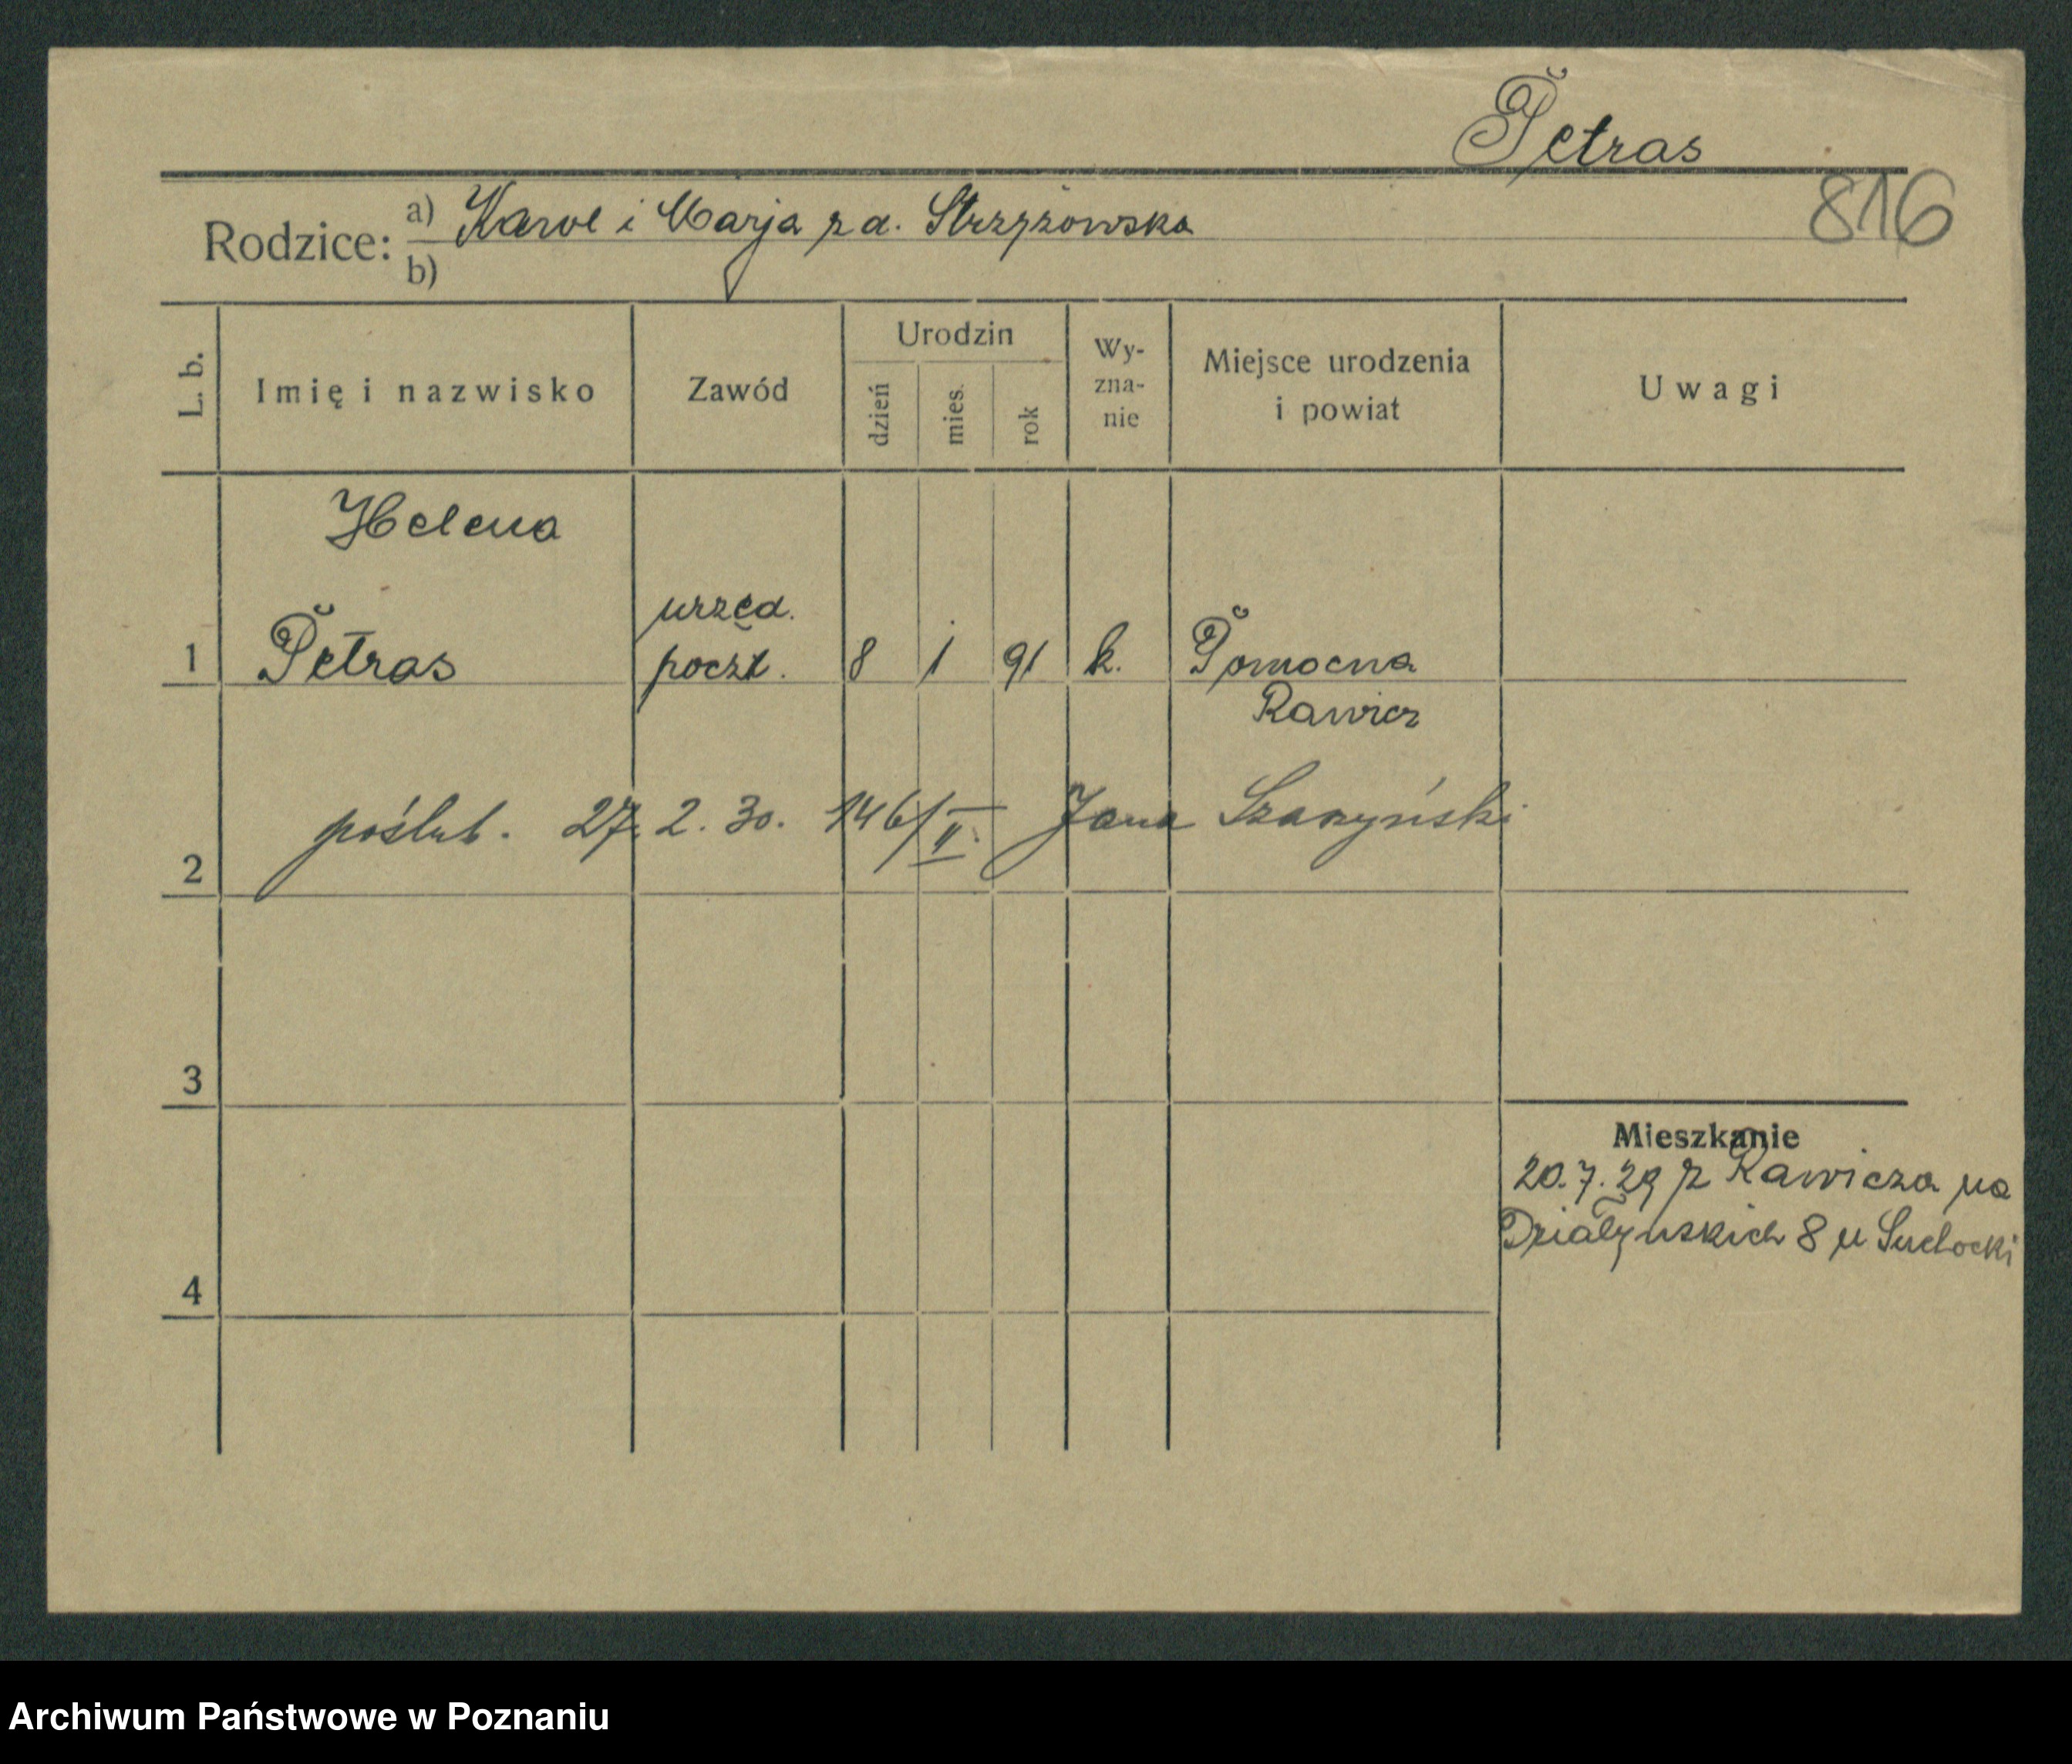 Petras
816
Rodzice: a) Karol i Marja z d. Strzyżowska
b)
L. b. Imię i nazwisko Zawód Urodzin dzień mies. rok Wy-zna-nie Miejsce urodzenia i powiat Uwagi
Helena
urzęd.
1 Petras poczt. 8 1 91 k. Pomocna
Rawicz
poślub. 27. 2. 30. 146/II. Jana
2
3
Mieszkanie
20.7.29 z Rawicza na
Działyńskich 8 u Suchocki
4
Archiwum Państwowe w Poznaniu